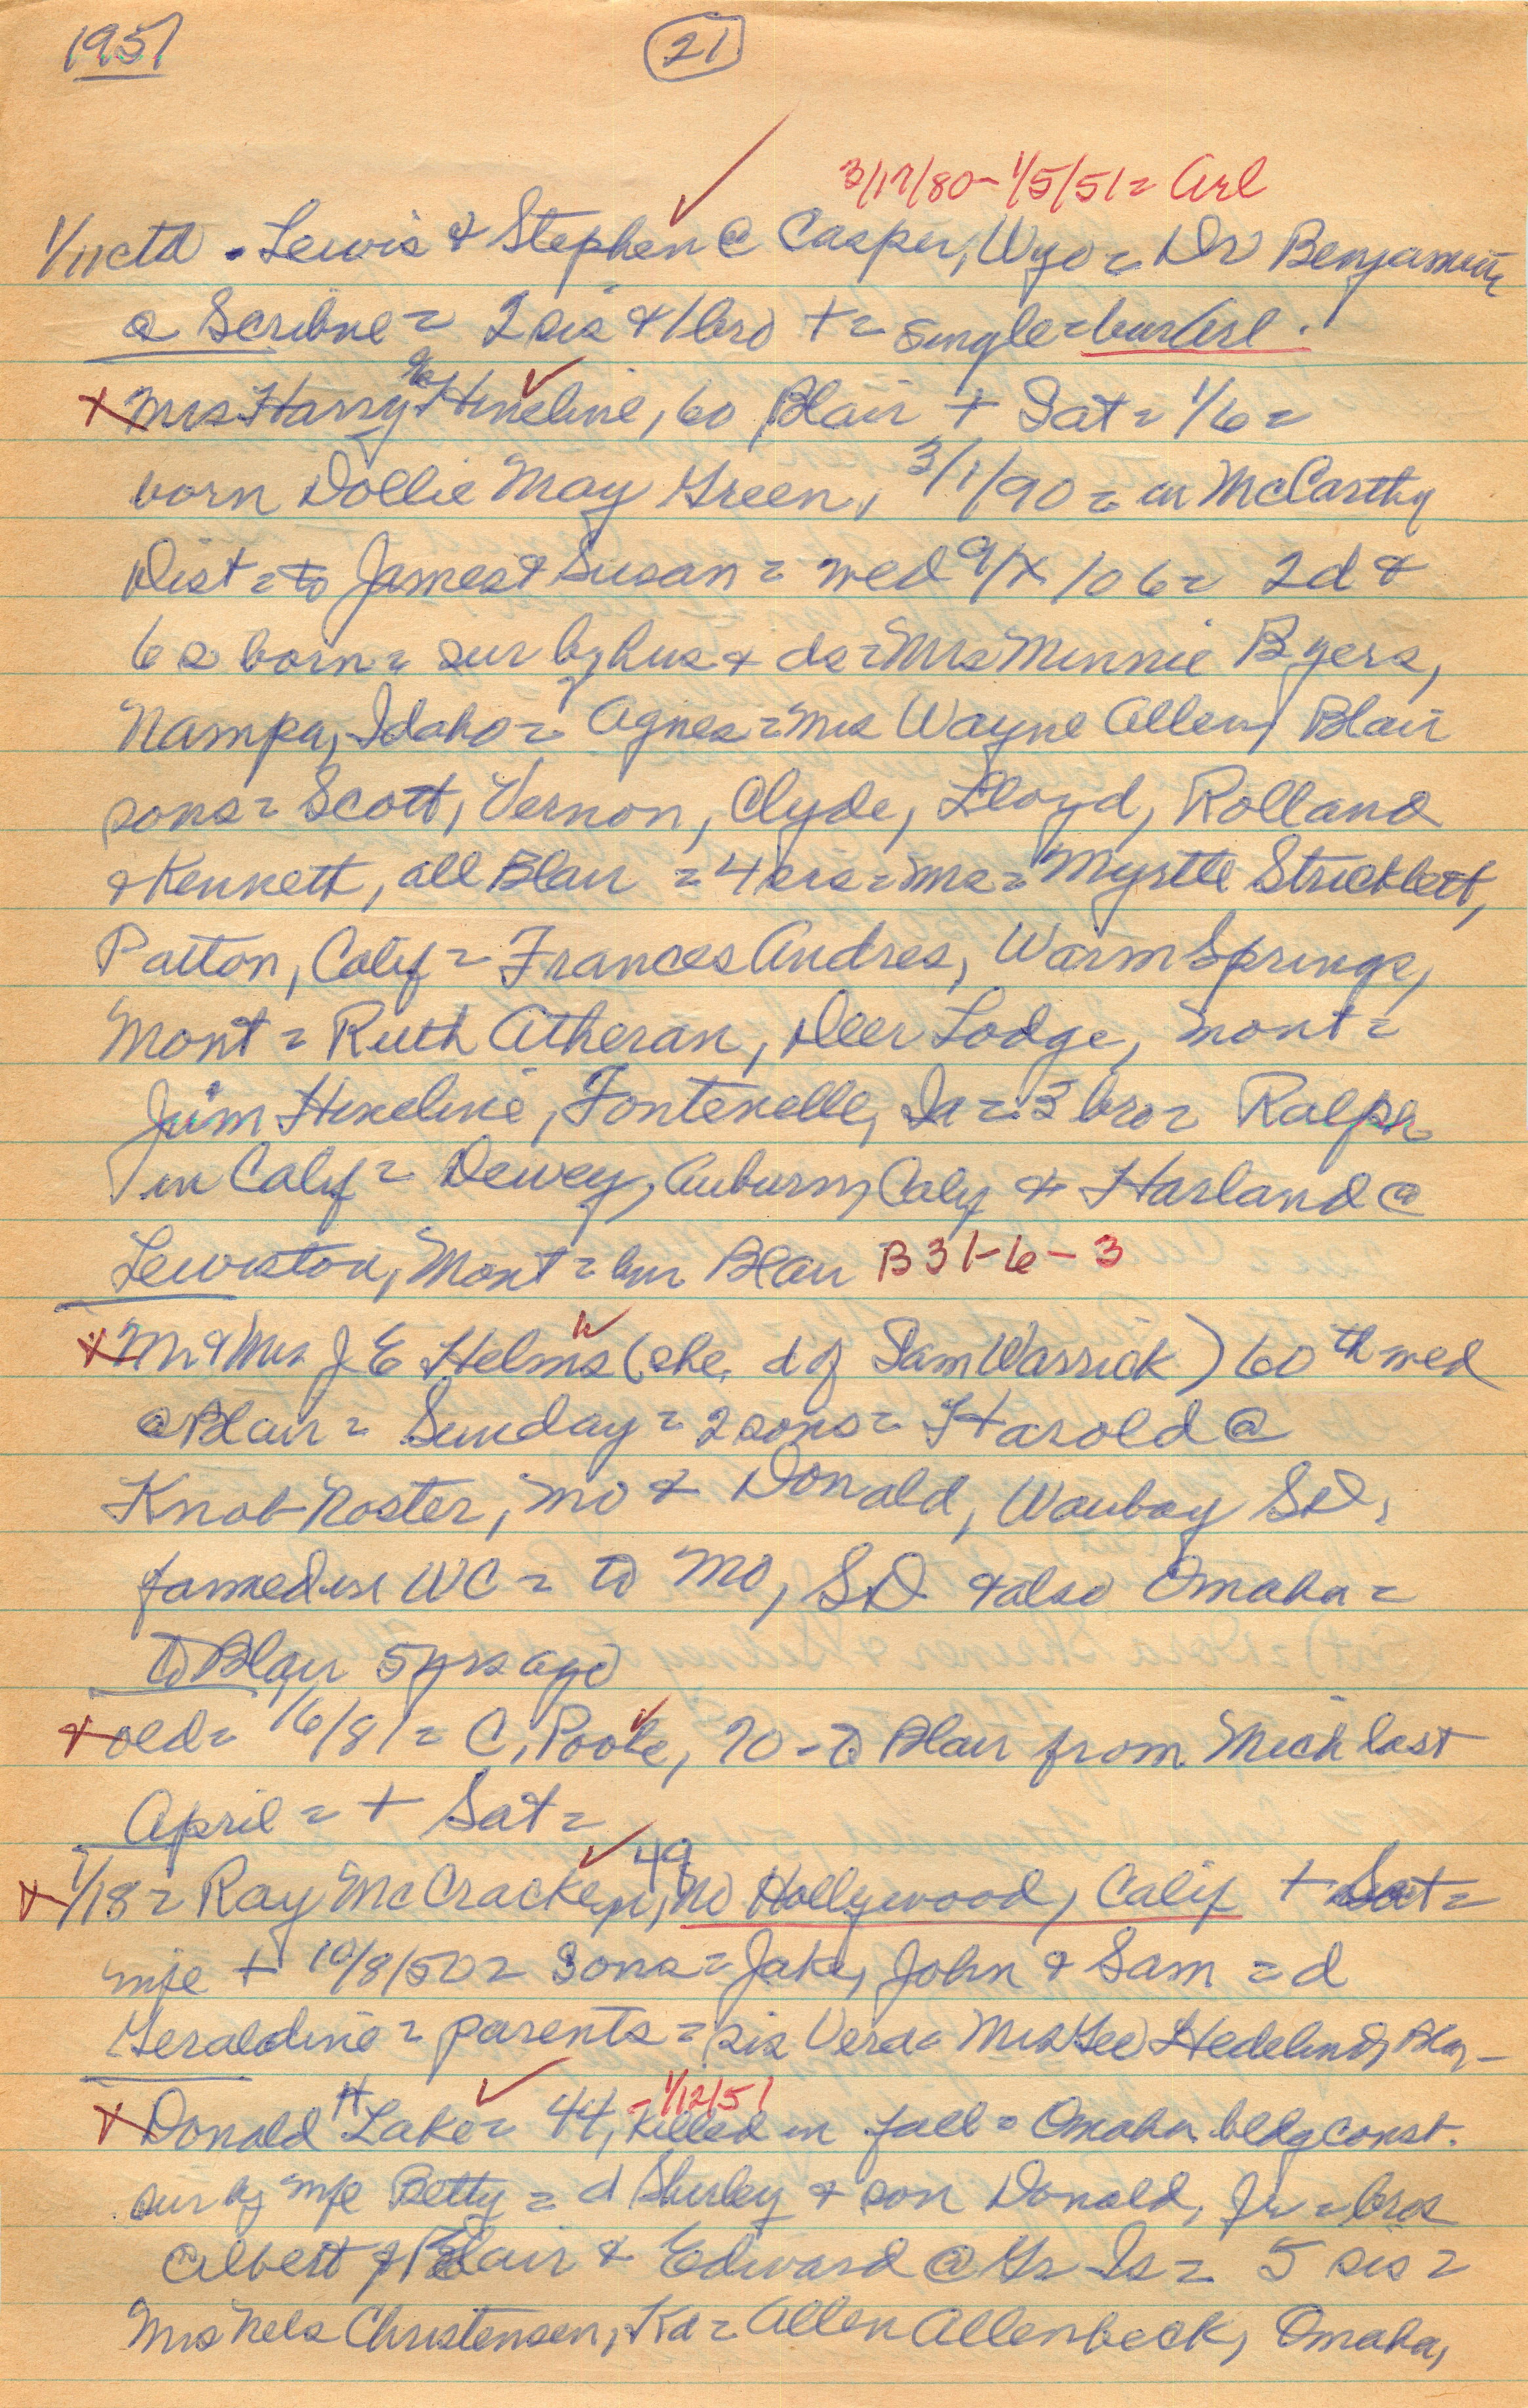 1951
21
3/17/80 - 1/5/51 = Arl
1/11 ctd - Lewis & Stephen @ Casper, Wyo = Dr Benjamin
a Scribne = 2 sis & 1 bro + = single = bur Arl.
Mrs Harry Hineline, 60 Blair + Sat = 1/6 =
born Dollie May Green, 3/1/90 = in McCarthy
Dist = to James & Susan = wed 9/X/06 = 2d &
6 s born = sur by hus & ds = Mrs Minnie Byers,
Nampa, Idaho = Agnes = Mrs Wayne Allen, Blair
sons = Scott, Vernon, Clyde, Lloyd, Rolland
& Kennett, all Blair = 4 srs = ms = Myrtle Stricklett,
Patton, Calif = Frances Andres, Warm Springs,
Mont = Ruth Atheran, Deer Lodge, Mont =
Jim Hineline, Fontenelle, Ia = 3 bro = Ralph
in Calif = Dewey, Auburn, Calif & Harland @
Lewiston, Mont = bur Blair B31-6-3
Mr & Mrs J E Helms (she, d of Sam Warrick) 60th wed
@ Blair = Sunday = 2 sons = Harold @
Knob Noster, Mo & Donald, Waubay SD,
farmed in WC = to Mo, SD & also Omaha =
to Blair 5 yrs ago
old = 1/6/81 = C. Poole, 70 - to Blair from Mich last
April = + Sat =
1/18 = Ray McCracken, 49, No Hollywood, Calif + Sat =
wife + 10/8/50 = sons = Jake, John & Sam = d
Geraldine = parents = sis Vera = Mrs Geo Hedelund, Blair -
Donald H Lake = 44, - 1/12/51 killed in fall = Omaha bldg const.
sur by wife Betty = d Shirley & son Donald, Jr = bros
Albert of Blair & Edward @ Gr Is = 5 sis =
Mrs Nels Christensen, Kd = Allen Allenbeck, Omaha,